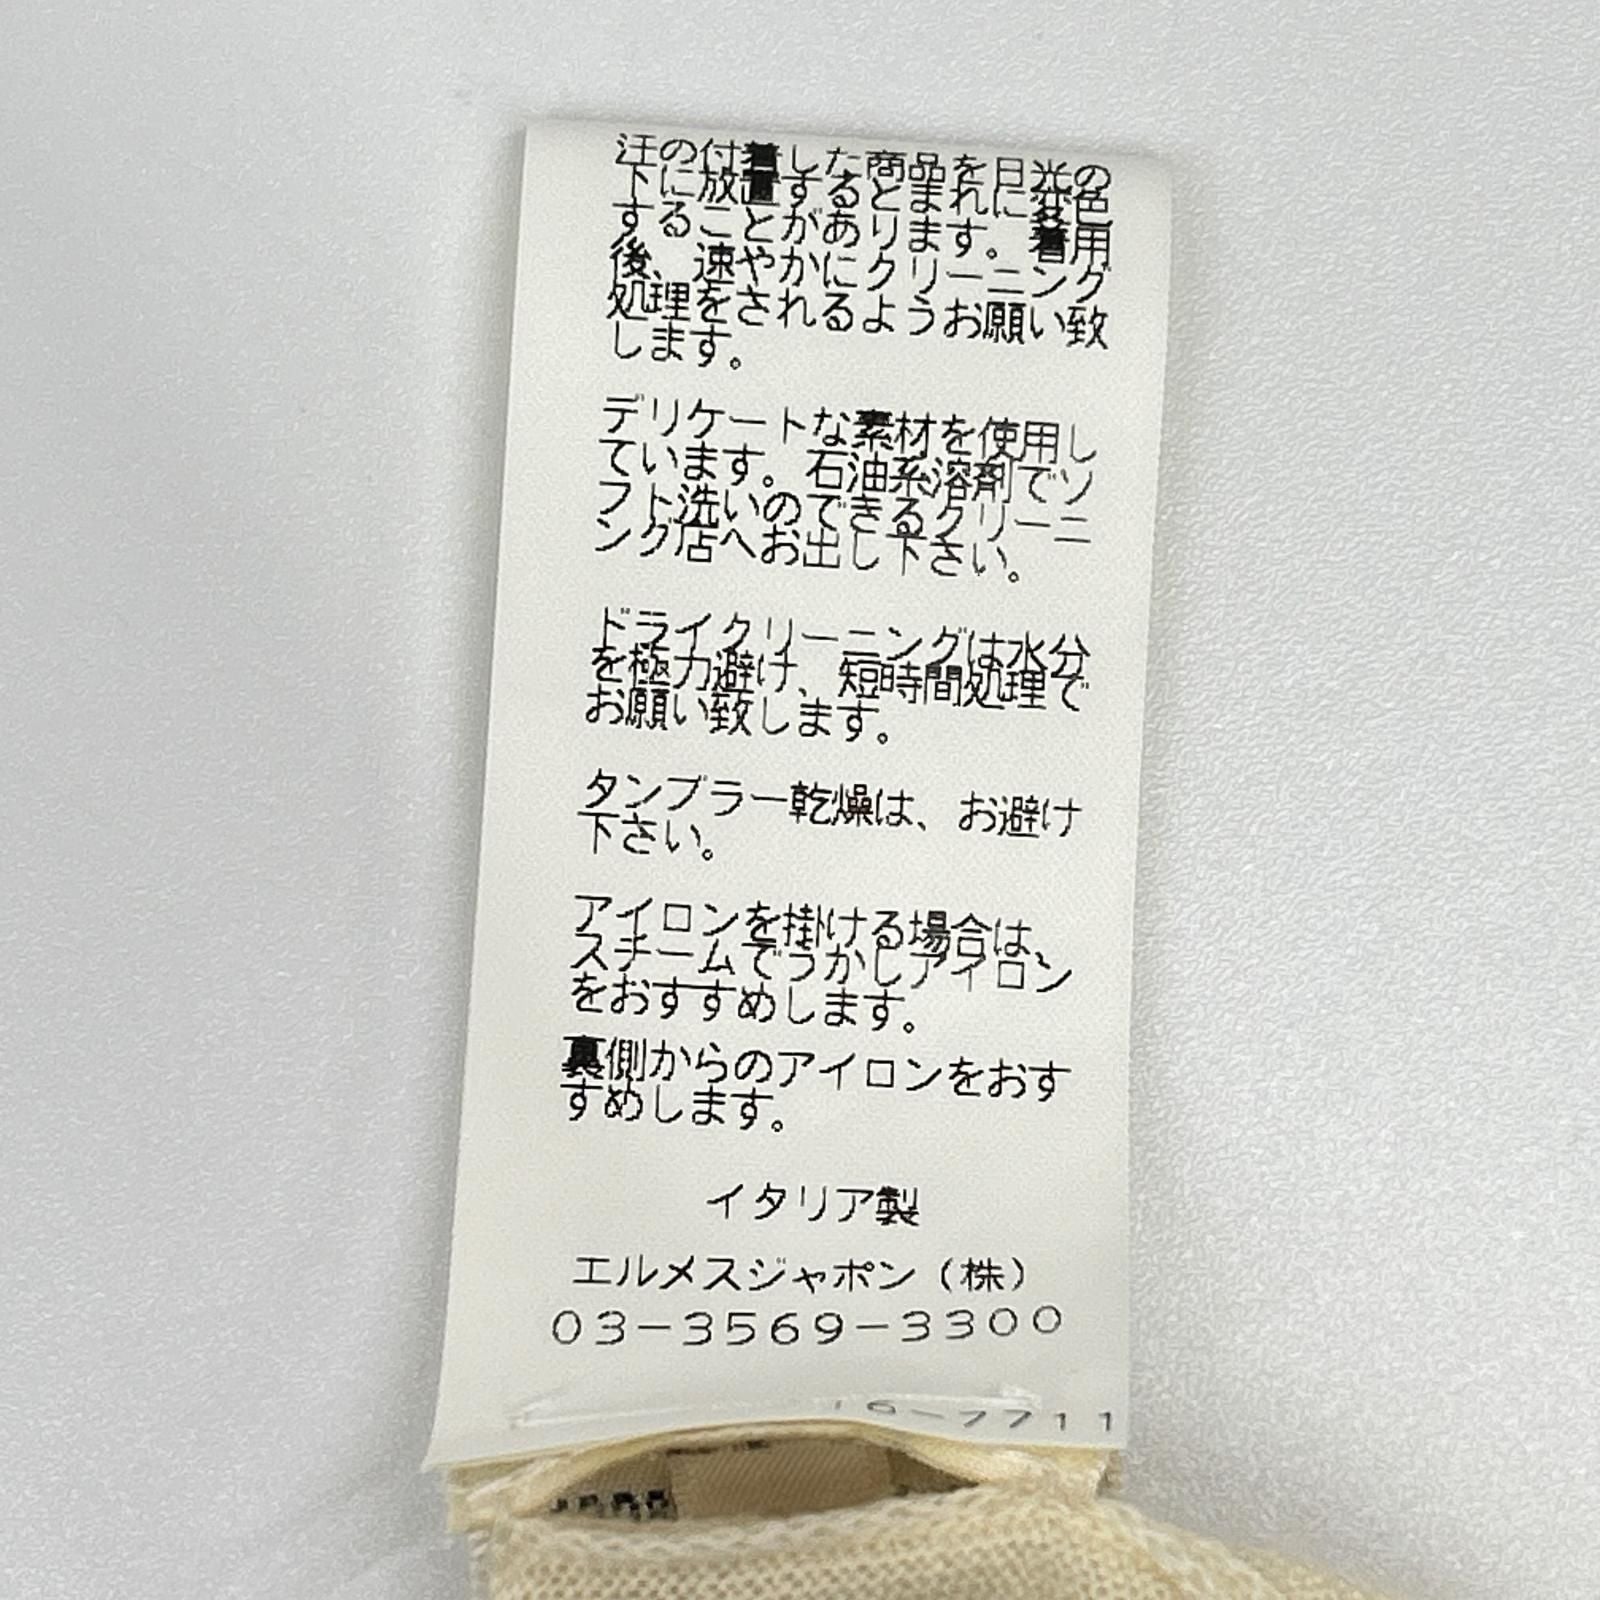 汗の付着した商品を日光の
下に放置するとまれに変色
することがあります。着用
後、速やかにクリーニング
処理をされるようお願い致
します。
デリケートな素材を使用し
ています。石油系溶剤でソ
フト洗いのできるクリーニ
ング店へお出し下さい。
ドライクリーニングは水分
を極力避け、短時間処理で
お願い致します。
タンブラー乾燥は、お避け
下さい。
アイロンを掛ける場合は、
スチームでうかしアイロン
をおすすめします。
裏側からのアイロンをおす
すめします。
イタリア製
エルメスジャポン（株）
03−3569−3300